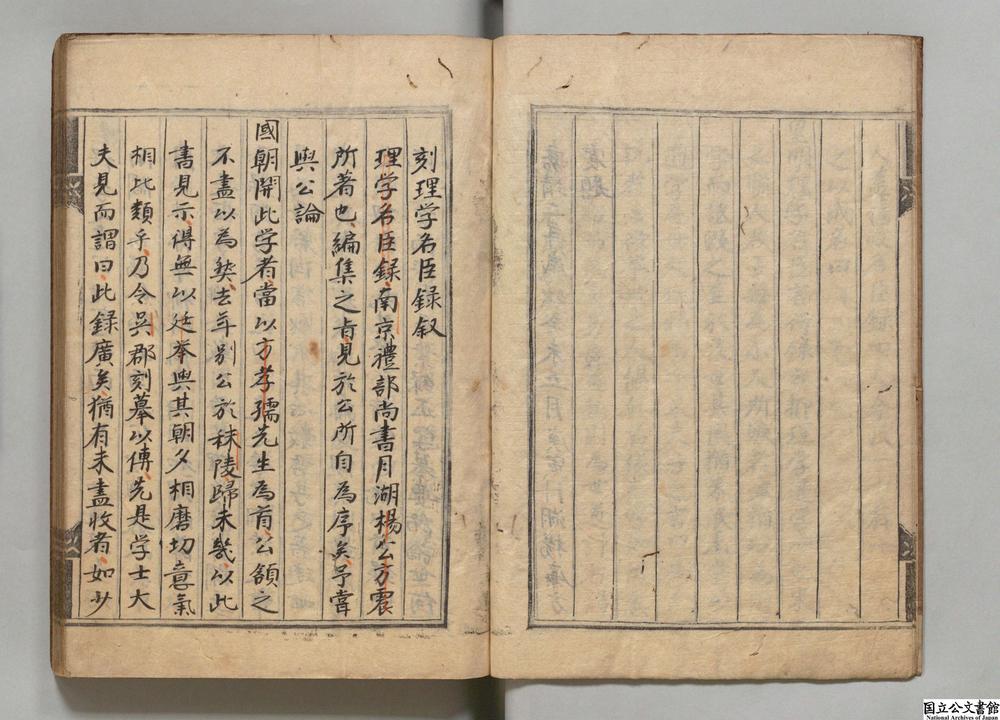 刻理学名臣録叙
理学名臣録南京禮部尚書月湖楊公方震
所著也編集之旨見於公所自為序矣予嘗
與公論
國朝開此学者當以方孝孺先生為首公頷之
不盡以為然去年別公於秣陵歸未幾以此
書見示得無以廷举與其朝夕相磨切意氣
相比類乎乃令吳郡刻摹以傳先是学士大
夫見而謂曰此録廣矣猶有未盡收者如少
国立公文書館
National Archives of Japan